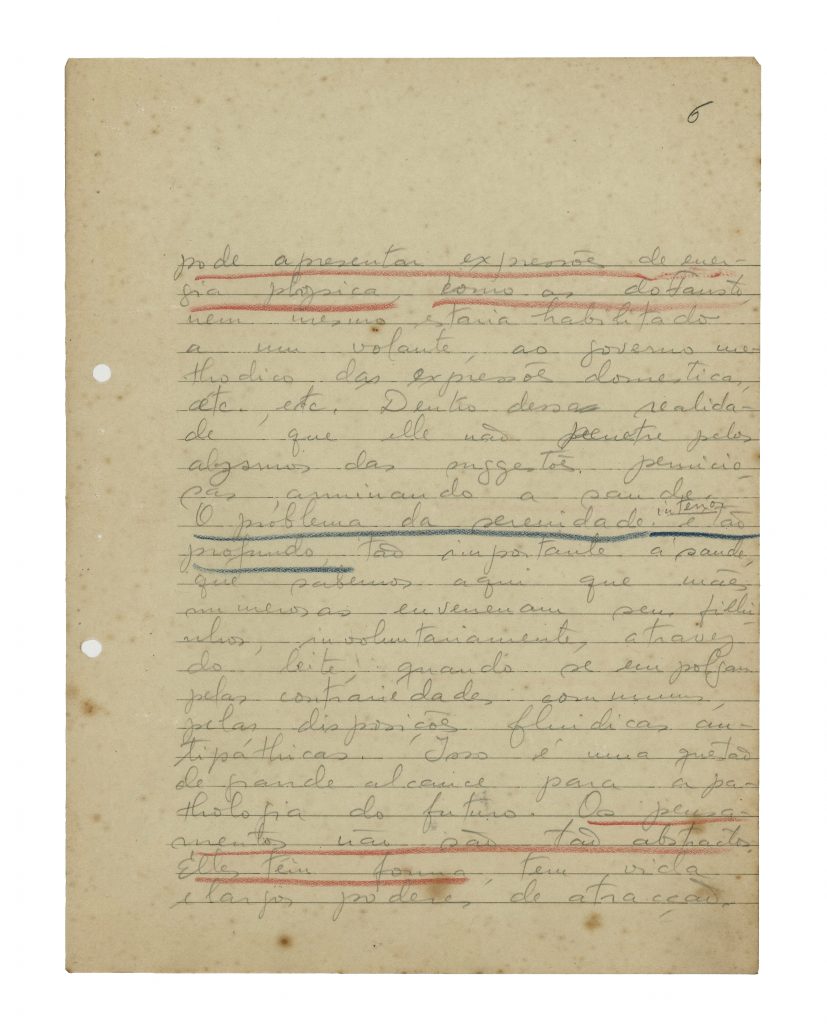 6
pode apresentar expressões de ener-
gia physica, como as do Fausto,
nem mesmo estaria habilitado
a um volante, ao governo me-
thodico das expressões domesticas,
etc., etc. Dentro dessa realida-
de, que elle não penetre pelos
abysmos das suggestões pernicio-
sas, arruinando a saude.
O problema da serenidade interior é tão
profundo, tão importante á saude,
que sabemos aqui que mães
numerosas envenenam seus filhi-
nhos, involuntariamente, atravez
do leite, quando se empolgam
pelas contrariedades communs,
pelas disposições fluidicas an-
tipáthicas. Isso é uma questão
de grande alcance para a pa-
thologia do futuro. Os pensa-
mentos não são tão abstractos.
Elles têm forma, tem vida
e largos poderes de atracção.